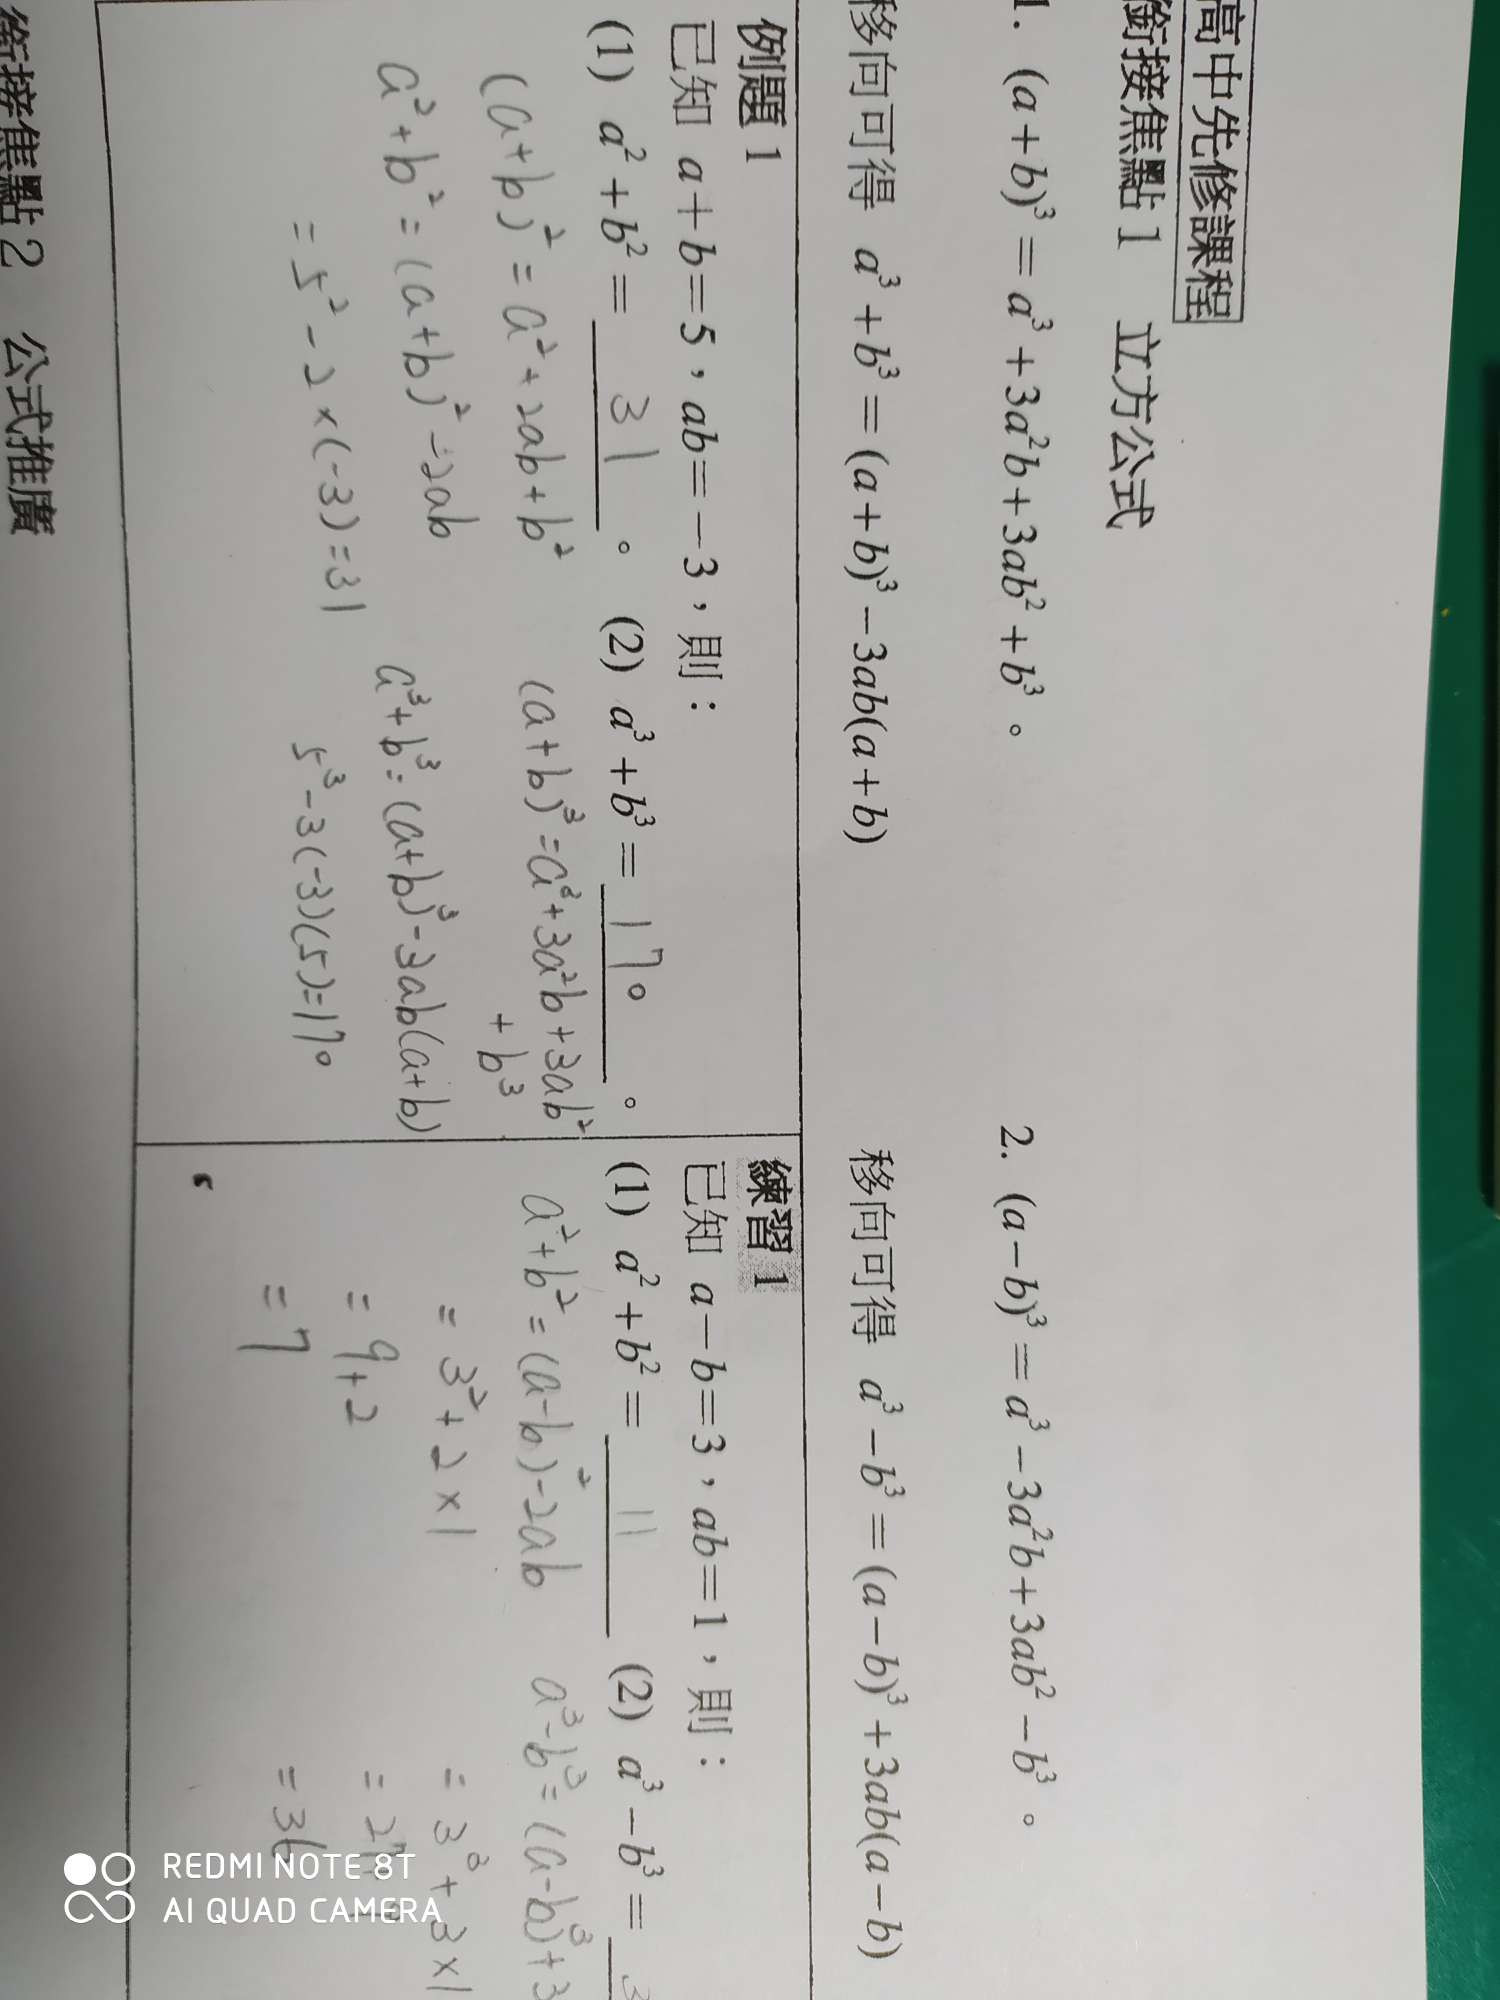 高中先修課程
銜接焦點1 立方公式
1. (a+b)³=a³+3a²b+3ab²+b³。
移向可得 a³+b³=(a+b)³-3ab(a+b)
2. (a-b)³=a³-3a²b+3ab²-b³。
移向可得 a³-b³=(a-b)³+3ab(a-b)
例題1
已知 a+b=5,ab=-3,則:
(1) a²+b²= 31 。 (2) a³+b³= 170 。
(a+b)²=a²+2ab+b²
a²+b²=(a+b)²-2ab
=5²-2×(-3)=31
(a+b)³=a³+3a²b+3ab²
+b³
a³+b³=(a+b)³-3ab(a+b)
5³-3(-3)(5)=170
練習1
已知 a-b=3,ab=1,則:
(1) a²+b²= 11 (2) a³-b³= 3
a²+b²=(a-b)²-2ab
=3²+2×1
=9+2
=7
a³-b³=(a-b)³+3
=3³+3×1
=36
銜接焦點2 公式推廣
REDMI NOTE 8T
AI QUAD CAMERA